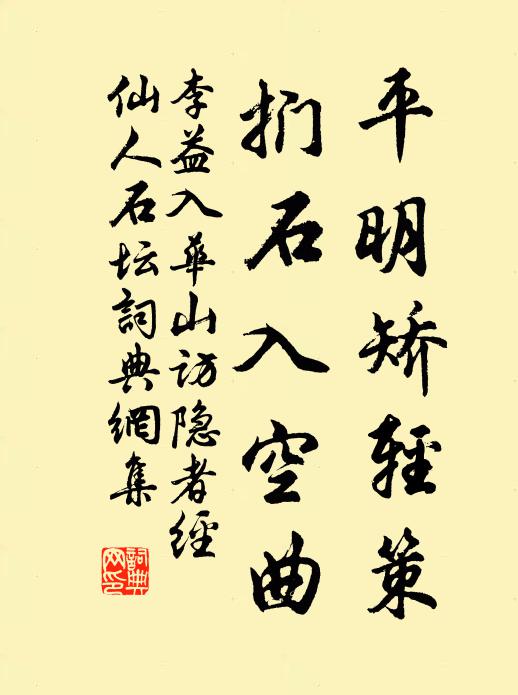 平明矫輕策
捫石入空曲
李益入華山访隐者經
仙人石坛詞典網集
詞典网印